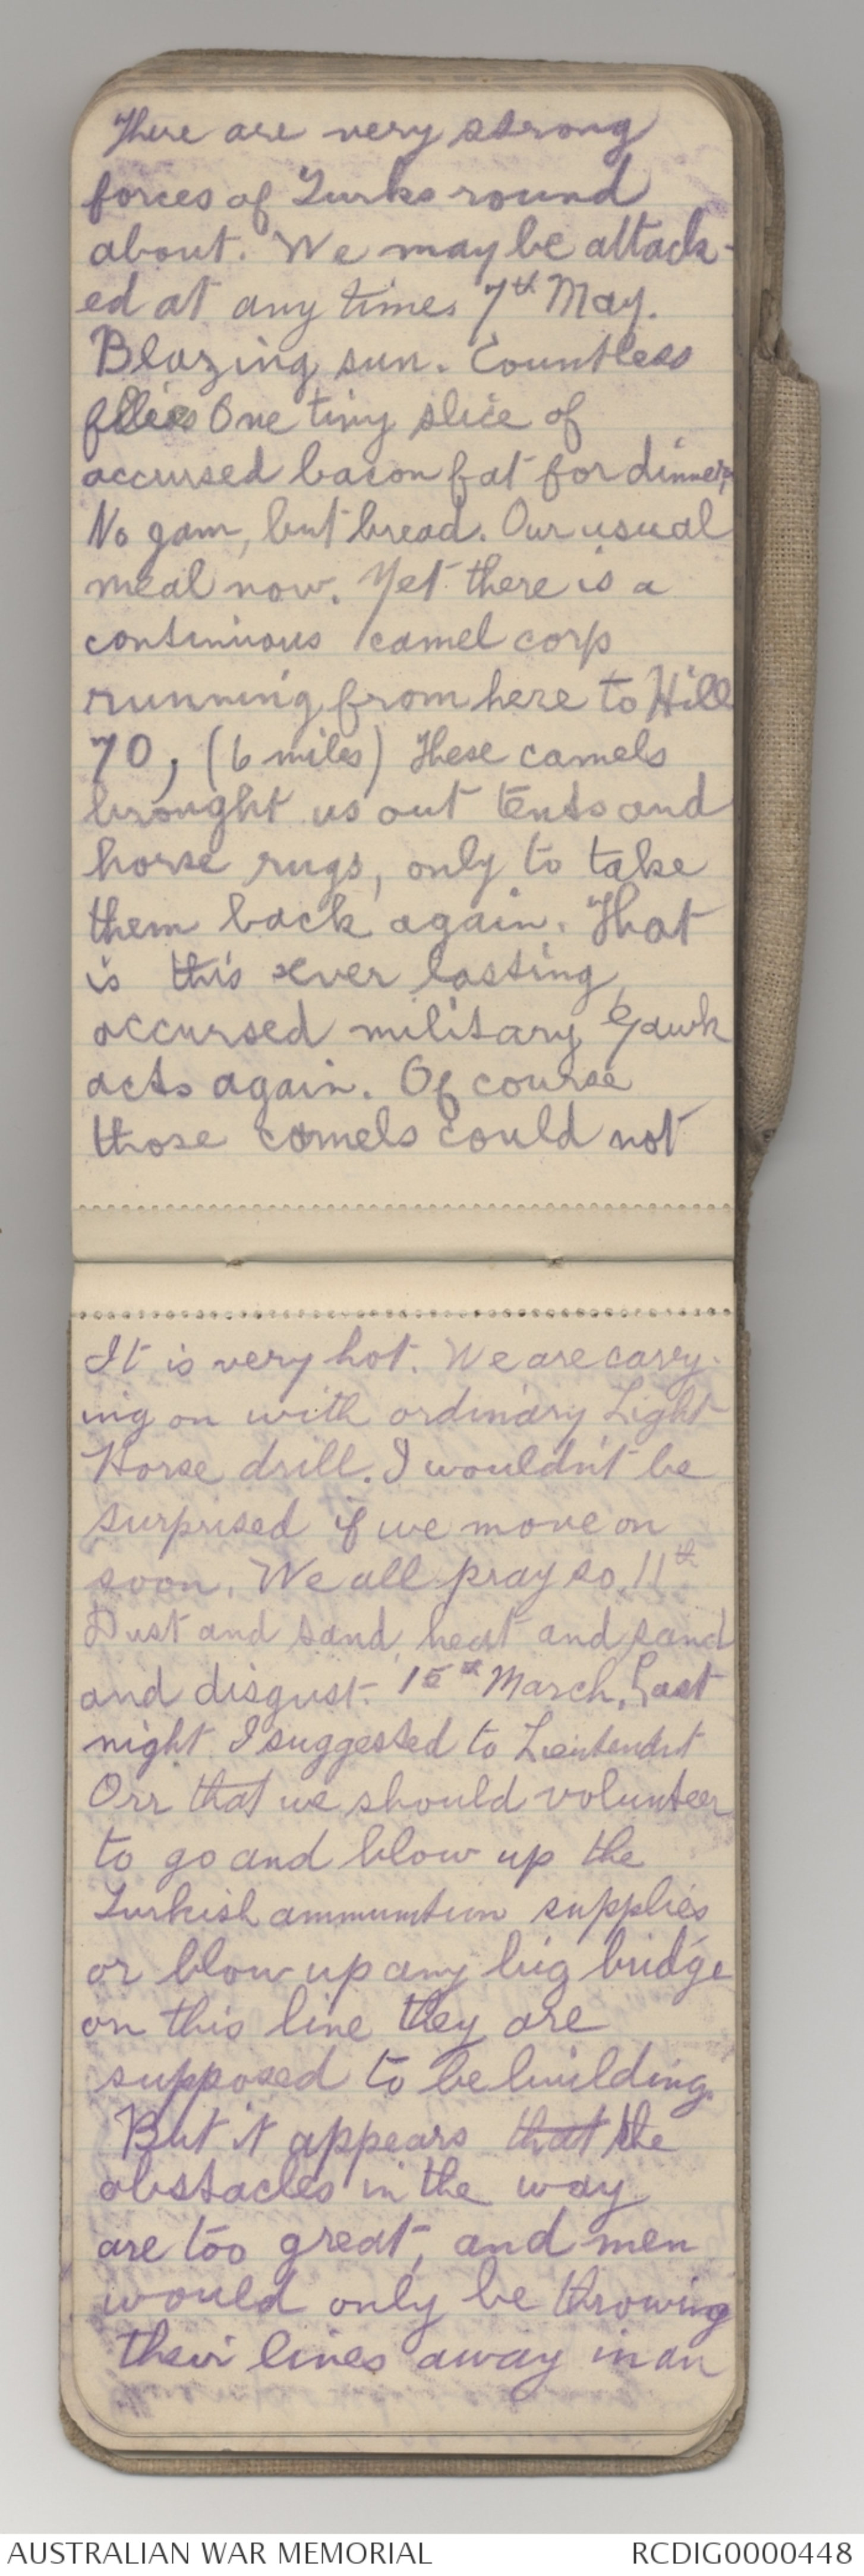 There are very strong
forces of Turks round
about. We may be attack-
ed at any times 7th May.
Blazing sun. Countless
flies One tiny slice of
accursed bacon fat for dinner,
No jam, but bread. Our usual
meal now. Yet there is a
continuous camel corp
running from here to Hill
70, (6 miles) These camels
brought us out tents and
horse rugs, only to take
them back again. That
is this ever lasting
accursed military Gawk
acts again. Of course
those camels could not
It is very hot. We are carry-
ing on with ordinary Light
Horse drill. I wouldn't be
surprised if we move on
soon. We all pray so. 11th
Dust and sand, heat and sand
and disgust. 15th March. Last
night I suggested to Lieutendnt
Orr that we should volunteer
to go and blow up the
Turkish ammumtion supplies
or blow up any big bridge
on this line they are
supposed to be building.
But it appears that the
obstacles in the way
are too great, and men
would only be throwing
their lives away in an
AUSTRALIAN WAR MEMORIAL
RCDIG0000448